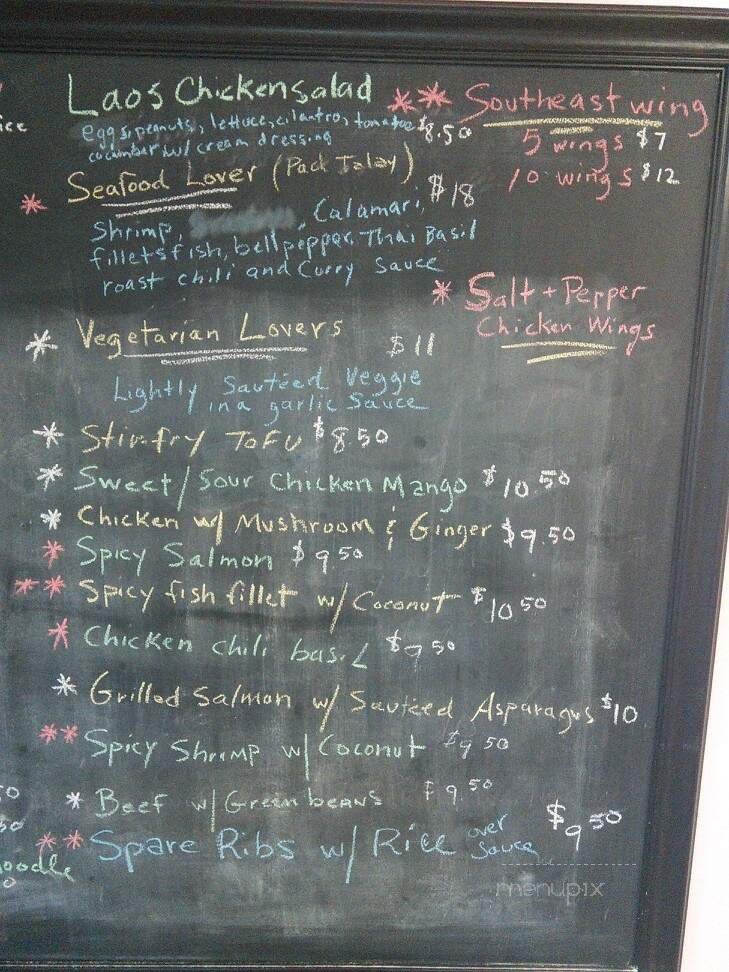 Laos Chicken salad
eggs, peanuts, lettuce, cilantro, tomatoes $8.50
cucumber w/ cream dressing
* Seafood Lover (Pad Talay) $18
Shrimp, Calamari,
fillets fish, bell pepper Thai Basil
roast chili and Curry Sauce
* Vegetarian Lovers $11
Lightly Sautéed Veggie
in a garlic Sauce
* Stir-fry ToFu $8.50
* Sweet/Sour Chicken Mango $10.50
* Chicken w/ Mushroom & Ginger $9.50
* Spicy Salmon $9.50
** Spicy fish fillet w/ Coconut $10.50
* Chicken chili basil $9.50
* Grilled Salmon w/ Sautéed Asparagus $10
** Spicy Shrimp w/ Coconut $9.50
* Beef w/ Green beans $9.50
** Spare Ribs w/ Rice over $9.50
Sauce
** Southeast wing
5 wings $7
10 wings $12
* Salt + Pepper
Chicken Wings
menupix